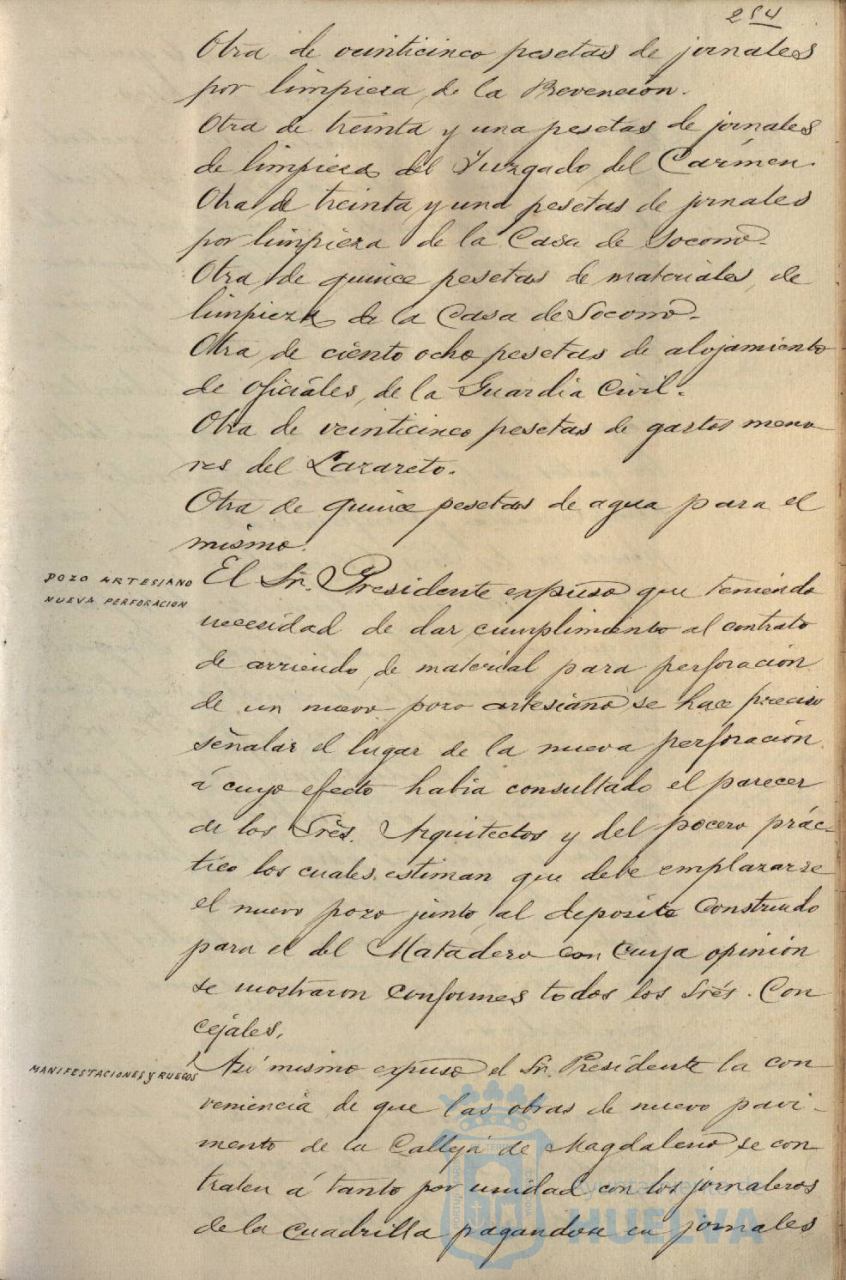 254
Otra de veinticinco pesetas de jornales
por limpieza de la Prevención.
Otra de treinta y una pesetas de jornales
de limpieza del Juzgado del Cármen.
Otra de treinta y una pesetas de jornales
por limpieza de la Casa de Socorro.
Otra de quince pesetas de materiales de
limpieza de la Casa de Socorro.
Otra de ciento ocho pesetas de alojamiento
de oficiales de la Guardia Civil.
Otra de veinticinco pesetas de gastos meno-
res del Lazareto.
Otra de quince pesetas de agua para el
mismo.
POZO ARTESIANO
NUEVA PERFORACION
El Sr. Presidente expuso que teniendo
necesidad de dar cumplimento al contrato
de arriendo de material para perforación
de un nuevo pozo artesiano se hace preciso
señalar el lugar de la nueva perforación
á cuyo efecto habia consultado el parecer
de los Srēs. Arquitectos y del pocero prác-
tico los cuales estiman que debe emplazarse
el nuevo pozo junto al deposito construido
para el del Matadero con cuya opinión
se mostraron conformes todos los Srés. Con
cejáles.
MANIFESTACIONES Y RUEGOS
Asi mismo expuso el Sr. Presidente la con
veniencia de que las obras de nuevo pavi-
mento de la Calleja de Magdalena se con
traten á tanto por unidad con los jornaleros
de la cuadrilla pagandose en jornales
Ayuntamiento de
HUELVA